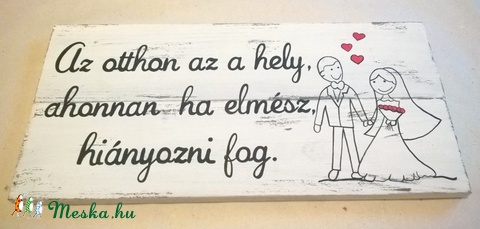 Az otthon az a hely,
ahonnan ha elmész,
hiányozni fog.
Meska.hu